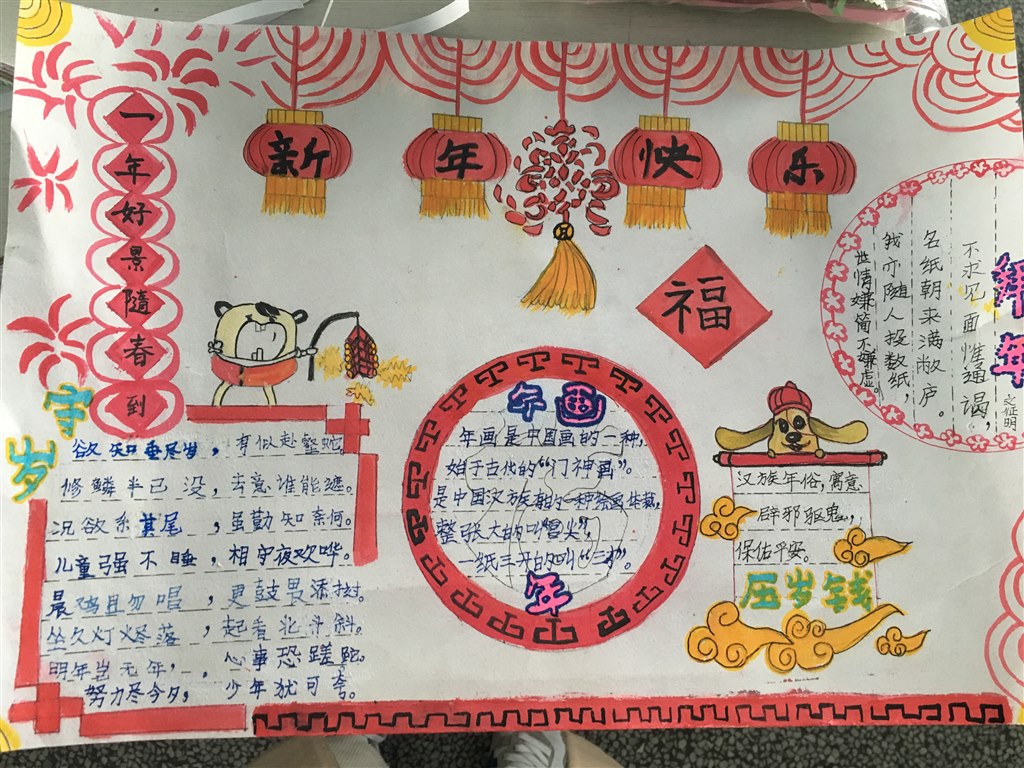 新年快乐
一年好景隨春到
福
守岁
欲知垂尽岁，有似赴壑蛇。
修鳞半已没，去意谁能遮。
况欲系其尾，虽勤知奈何。
儿童强不睡，相守夜欢哗。
晨鸡且勿唱，更鼓畏添挝。
坐久灯烬落，起看北斗斜。
明年岂无年，心事恐蹉跎。
努力尽今夕，少年犹可夸。
年画
年画是中国画的一种，
始于古代的“门神画”。
是中国汉族
整张大的叫“宫尖”，
一纸三开的叫“三才”。
年
汉族年俗，寓意
辟邪驱鬼，
保佑平安。
压岁钱
年
不求见面惟通谒，
名纸朝来满敝庐。
我亦随人投数纸，
世情嫌简不嫌虚。
文征明